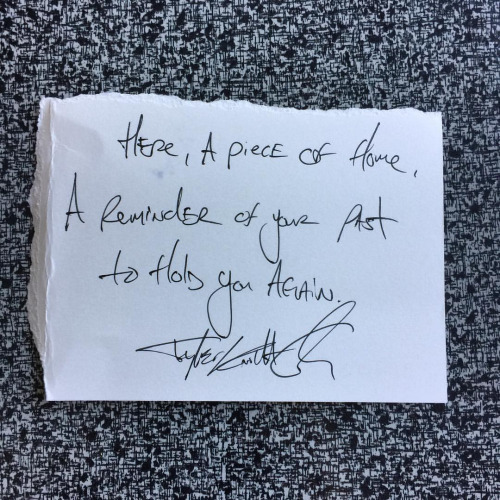 Here, A piece of Home,
A Reminder of your Past
to Hold you Again.
Tyler Knott